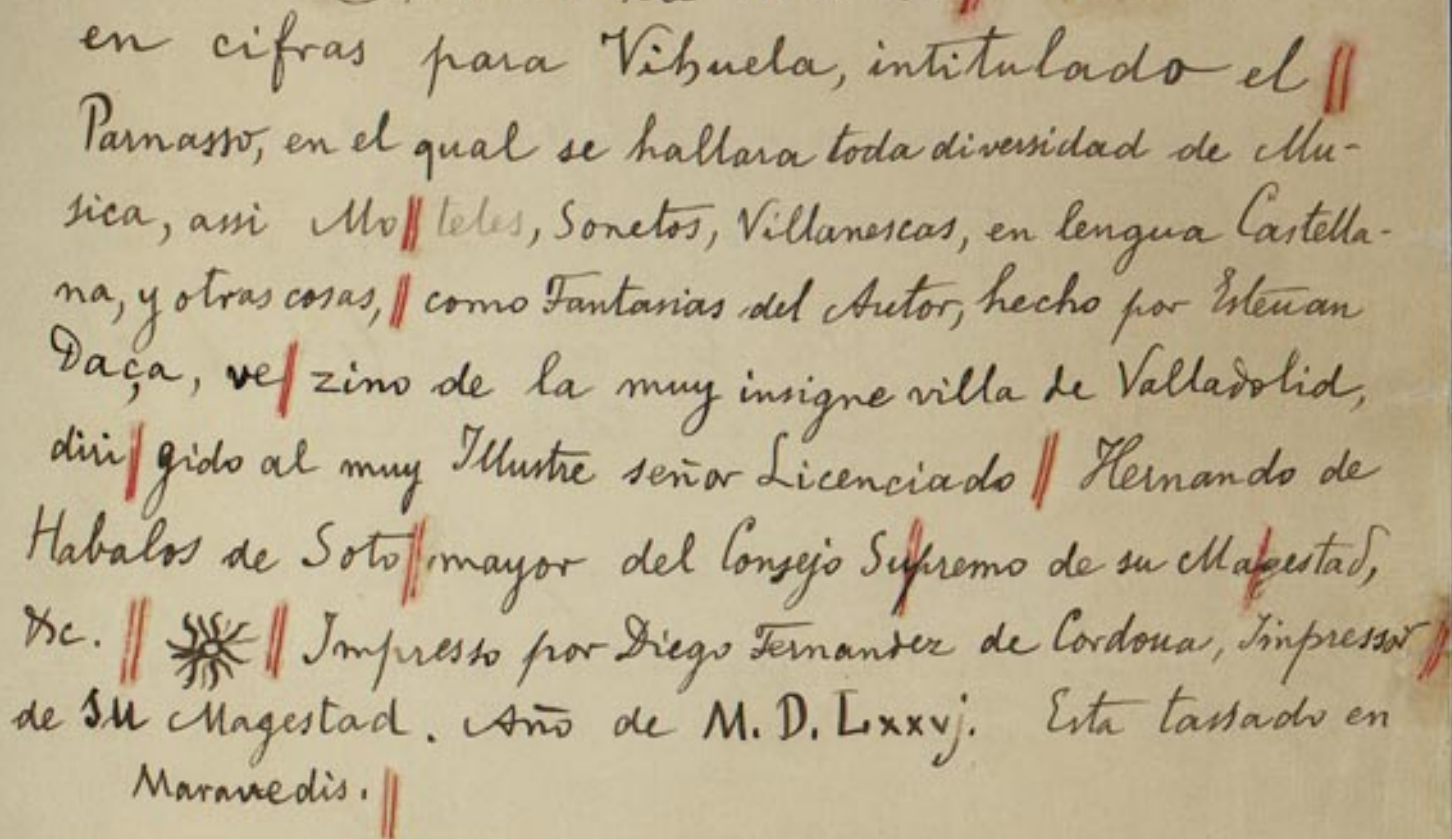 en cifras para Vihuela, intitulado el ||
Parnasso, en el qual se hallara toda diversidad de Mu-
sica, assi Mo || teles, Sonetos, Villanescas, en lengua Castella-
na, y otras cosas, || como Fantasias del Autor, hecho por Esteuan
Daça, ve | zino de la muy insigne villa de Valladolid,
diri | gido al muy Illustre señor Licenciado || Hernando de
Habalos de Soto || mayor del Consejo Supremo de su Magestad,
&c. || || Impresso por Diego Fernandez de Cordoua, Impressor ||
de SU Magestad. Año de M. D. Lxxvj. Esta tassado en
Maravedis. ||